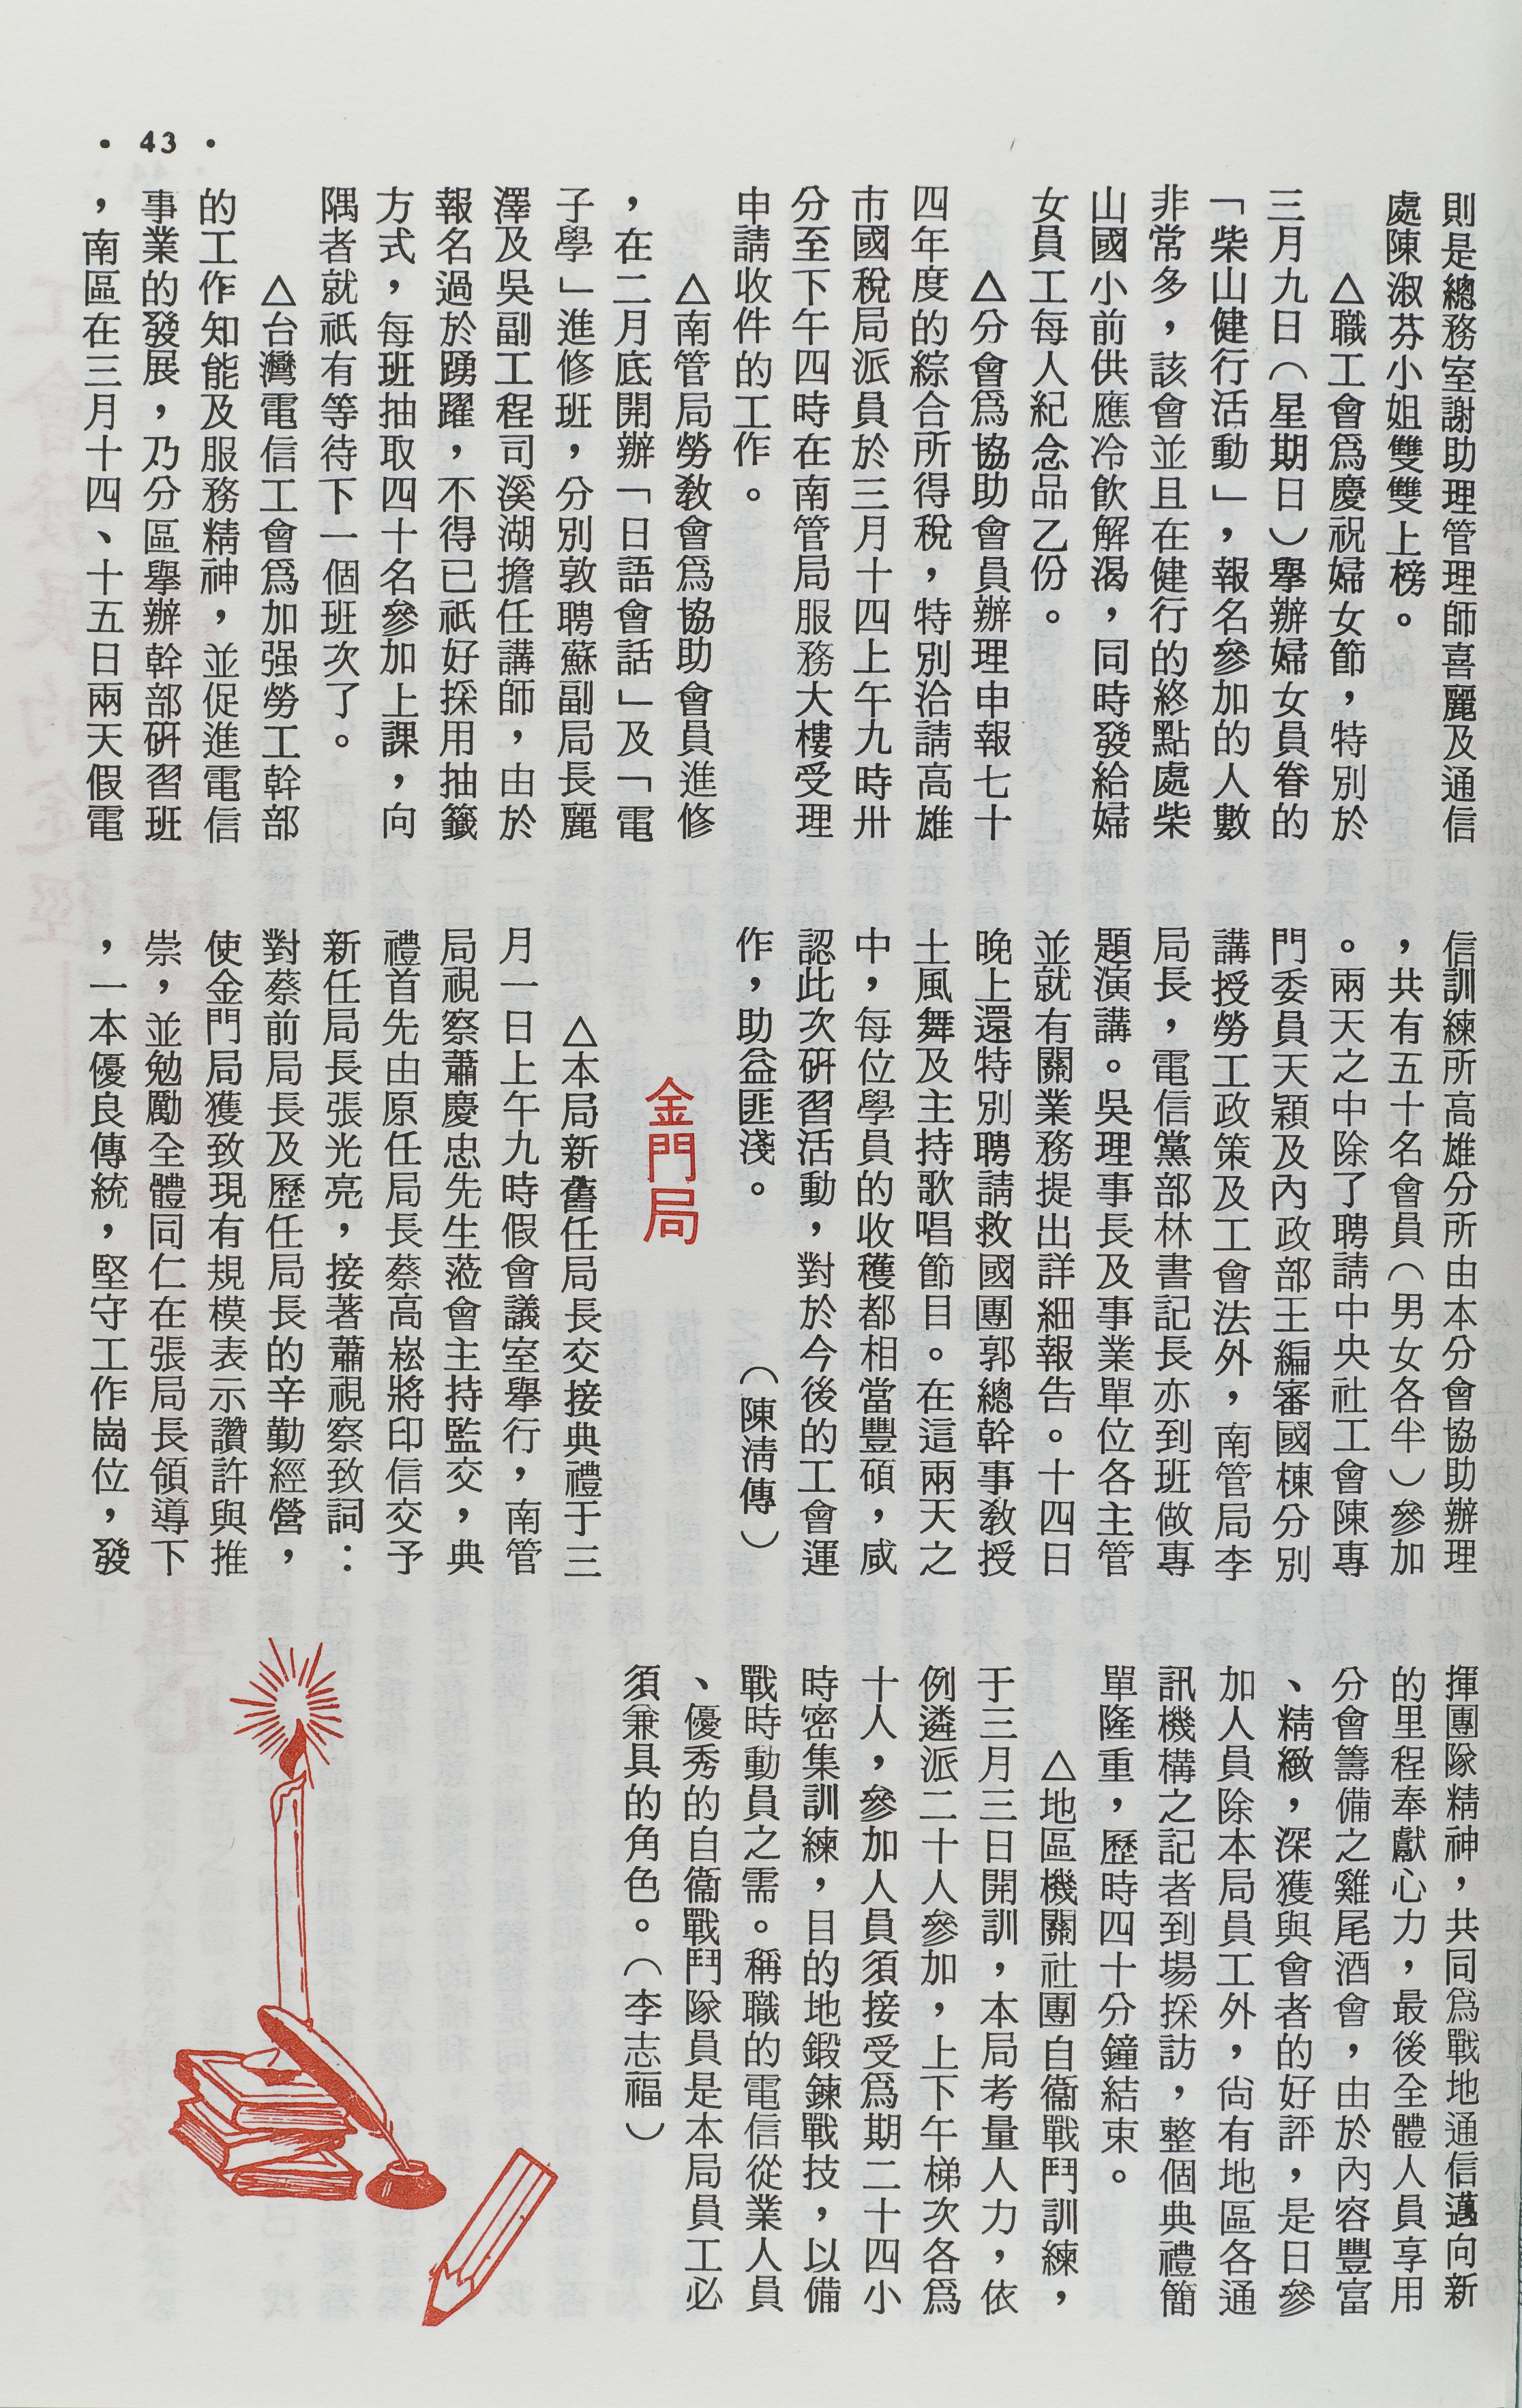 • 43 •
則是總務室謝助理管理師喜麗及通信
處陳淑芬小姐雙雙上榜。
△職工會爲慶祝婦女節，特別於
三月九日（星期日）舉辦婦女員眷的
「柴山健行活動」，報名參加的人數
非常多，該會並且在健行的終點處柴
山國小前供應冷飲解渴，同時發給婦
女員工每人紀念品乙份。
△分會爲協助會員辦理申報七十
四年度的綜合所得稅，特別洽請高雄
市國稅局派員於三月十四上午九時卅
分至下午四時在南管局服務大樓受理
申請收件的工作。
△南管局勞教會爲協助會員進修
，在二月底開辦「日語會話」及「電
子學」進修班，分別敦聘蘇副局長麗
澤及吳副工程司溪湖擔任講師，由於
報名過於踴躍，不得已祇好採用抽籤
方式，每班抽取四十名參加上課，向
隅者就祇有等待下一個班次了。
△台灣電信工會爲加强勞工幹部
的工作知能及服務精神，並促進電信
事業的發展，乃分區舉辦幹部硏習班
，南區在三月十四、十五日兩天假電
信訓練所高雄分所由本分會協助辦理
，共有五十名會員（男女各半）參加
。兩天之中除了聘請中央社工會陳專
門委員天穎及內政部王編審國棟分別
講授勞工政策及工會法外，南管局李
局長，電信黨部林書記長亦到班做專
題演講。吳理事長及事業單位各主管
並就有關業務提出詳細報告。十四日
晚上還特別聘請救國團郭總幹事教授
土風舞及主持歌唱節目。在這兩天之
中，每位學員的收穫都相當豐碩，咸
認此次硏習活動，對於今後的工會運
作，助益匪淺。　　　　（陳淸傳）
金門局
△本局新舊任局長交接典禮于三
月一日上午九時假會議室舉行，南管
局視察蕭慶忠先生蒞會主持監交，典
禮首先由原任局長蔡高崧將印信交予
新任局長張光亮，接著蕭視察致詞：
對蔡前局長及歷任局長的辛勤經營，
使金門局獲致現有規模表示讚許與推
崇，並勉勵全體同仁在張局長領導下
，一本優良傳統，堅守工作崗位，發
揮團隊精神，共同爲戰地通信邁向新
的里程奉獻心力，最後全體人員享用
分會籌備之雞尾酒會，由於內容豐富
、精緻，深獲與會者的好評，是日參
加人員除本局員工外，尙有地區各通
訊機構之記者到場採訪，整個典禮簡
單隆重，歷時四十分鐘結束。
△地區機關社團自衞戰鬥訓練，
于三月三日開訓，本局考量人力，依
例遴派二十人參加，上下午梯次各爲
十人，參加人員須接受爲期二十四小
時密集訓練，目的地鍛鍊戰技，以備
戰時動員之需。稱職的電信從業人員
、優秀的自衞戰鬥隊員是本局員工必
須兼具的角色。（李志福）